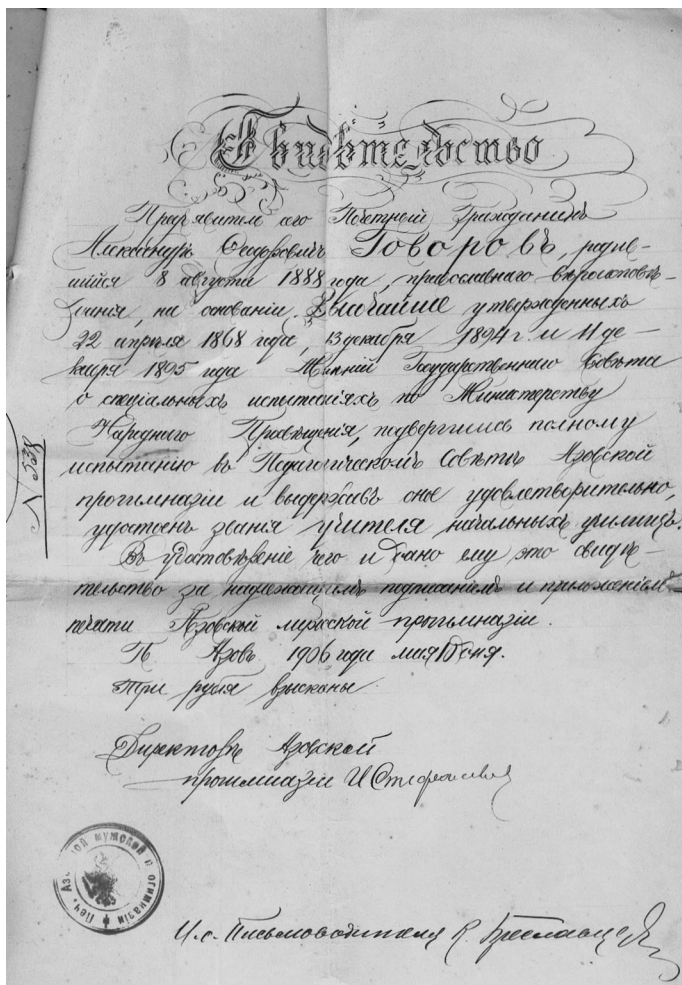 Свидѣтельство
Предъявитель сего Почетный Гражданинъ
Александръ Сидоровичъ Говоровъ, родив-
шійся 8 августа 1888 года, православнаго вѣроисповѣ-
данія, на основаніи Высочайше утвержденныхъ
22 апрѣля 1868 года, 13 декабря 1894 г. и 11 де-
кабря 1895 года Мнѣній Государственнаго Совѣта
о спеціальныхъ испытаніяхъ по Министерству
Народнаго Просвѣщенія, подвергшись полному
испытанію въ Педагогическомъ Совѣтѣ Азовской
прогимназіи и выдержавъ оное удовлетворительно,
удостоенъ званія учителя начальныхъ училищъ.
Въ удостовѣреніе чего и дано ему это свидѣ-
тельство за надлежащимъ подписаніемъ и приложеніемъ
печати Азовской мужской прогимназіи.
Г. Азовъ 1906 года мая дня.
Три рубля взысканы.
№ 538
Директоръ Азовской
прогимназіи И
Печ. Азовской мужской прогимназіи
И. о. Письмоводителя К. Бреславцевъ